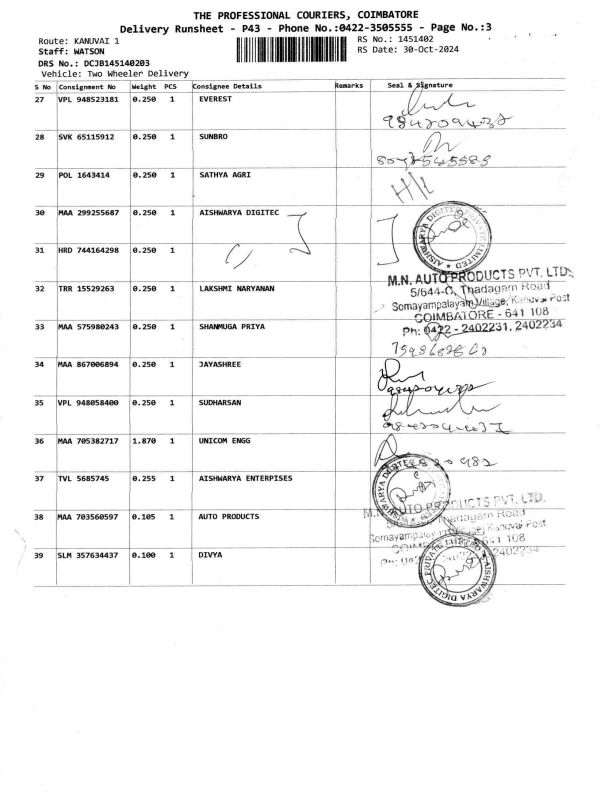 THE PROFESSIONAL COURIERS, COIMBATORE
Delivery Runsheet - P43 - Phone No.:0422-3505555 - Page No.:3
Route: KANUVAI 1
RS No.: 1451402
Staff: WATSON
RS Date: 30-Oct-2024
DRS No.: DCJB145140203
Vehicle: Two Wheeler Delivery
S No Consignment No Weight PCS Consignee Details Remarks Seal & Signature
27 VPL 948523181 0.250 1 EVEREST
28 SVK 65115912 0.250 1 SUNBRO
29 POL 1643414 0.250 1 SATHYA AGRI
30 MAA 299255687 0.250 1 AISHWARYA DIGITEC
AISHWARYA DIGITEC PRIVATE LIMITED
31 HRD 744164298 0.250 1
M.N. AUTO PRODUCTS PVT. LTD.
32 TRR 15529263 0.250 1 LAKSHMI NARYANAN
5/644-C, Thadagam Road
Somayampalayam Village, Kanuvai Post
COIMBATORE - 641 108
33 MAA 575980243 0.250 1 SHANMUGA PRIYA
Ph: 0422 - 2402231, 2402234
34 MAA 867006894 0.250 1 JAYASHREE
35 VPL 948058400 0.250 1 SUDHARSAN
36 MAA 705382717 1.870 1 UNICOM ENGG
37 TVL 5685745 0.255 1 AISHWARYA ENTERPISES
38 MAA 703560597 0.105 1 AUTO PRODUCTS
M.N. AUTO PRODUCTS PVT. LTD.
Thadagam Road
Somayampalayam Kanuvai Post
39 SLM 357634437 0.100 1 DIVYA
2402234
AISHWARYA DIGITEC PRIVATE LIMITED